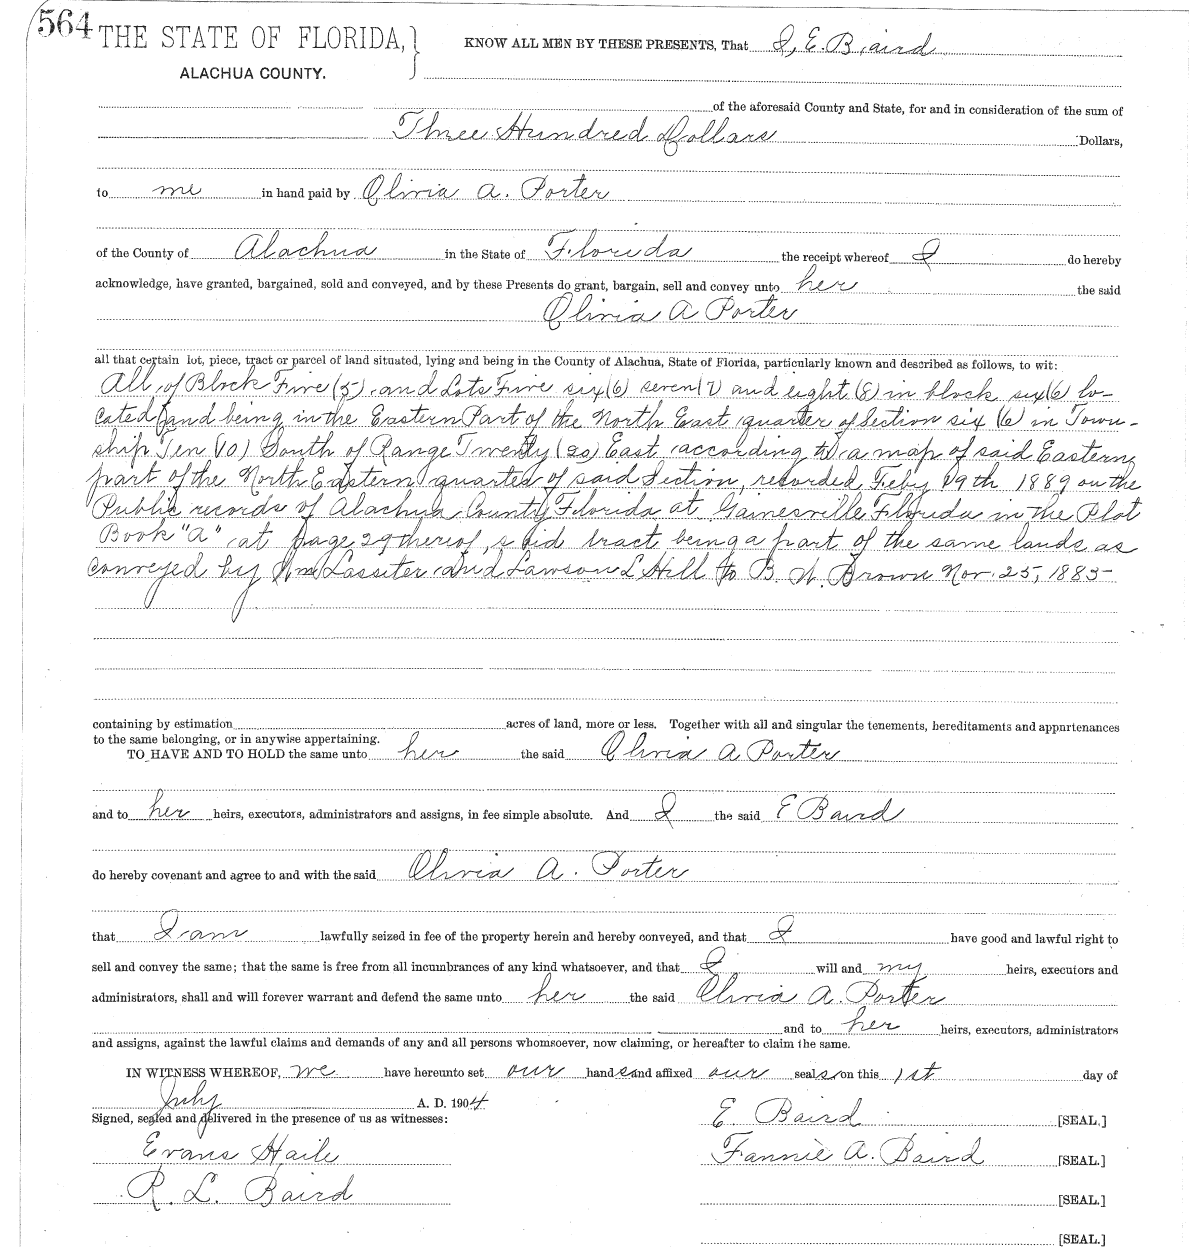 564
THE STATE OF FLORIDA,
ALACHUA COUNTY.
KNOW ALL MEN BY THESE PRESENTS, That I, E. Baird
of the aforesaid County and State, for and in consideration of the sum of
Three Hundred Dollars Dollars,
to me in hand paid by Olivia A. Porter
of the County of Alachua in the State of Florida the receipt whereof I do hereby
acknowledge, have granted, bargained, sold and conveyed, and by these Presents do grant, bargain, sell and convey unto her the said
Olivia A Porter
all that certain lot, piece, tract or parcel of land situated, lying and being in the County of Alachua, State of Florida, particularly known and described as follows, to wit:
All of Block Five (5) and Lots Five six (6) seven (7) and eight (8) in block six (6) lo-
cated and being in the Eastern Part of the North East quarter of Section six (6) in Town-
ship Ten (10) South of Range Twenty (20) East according to a map of said Eastern
part of the North Eastern quarter of said Section, recorded Feby 19th 1889 on the
Public records of Alachua County Florida at Gainesville Florida in the Plat
Book "A" at page 29 thereof, said tract being a part of the same lands as
conveyed by Wm Lassiter and Lawson L Hill to B. Brown Nov. 25, 1883-
containing by estimation acres of land, more or less. Together with all and singular the tenements, hereditaments and appurtenances
to the same belonging, or in anywise appertaining.
TO HAVE AND TO HOLD the same unto her the said Olivia A Porter
and to her heirs, executors, administrators and assigns, in fee simple absolute. And I the said E Baird
do hereby covenant and agree to and with the said Olivia A. Porter
that I am lawfully seized in fee of the property herein and hereby conveyed, and that I have good and lawful right to
sell and convey the same; that the same is free from all incumbrances of any kind whatsoever, and that I will and my heirs, executors and
administrators, shall and will forever warrant and defend the same unto her the said Olivia A. Porter
and to her heirs, executors, administrators
and assigns, against the lawful claims and demands of any and all persons whomsoever, now claiming, or hereafter to claim the same.
IN WITNESS WHEREOF, we have hereunto set our hands and affixed our seals on this 1st day of
July A. D. 1904
Signed, sealed and delivered in the presence of us as witnesses:
E. Baird [SEAL.]
Evans Haile
Fannie A. Baird [SEAL.]
R. L. Baird
[SEAL.]
[SEAL.]